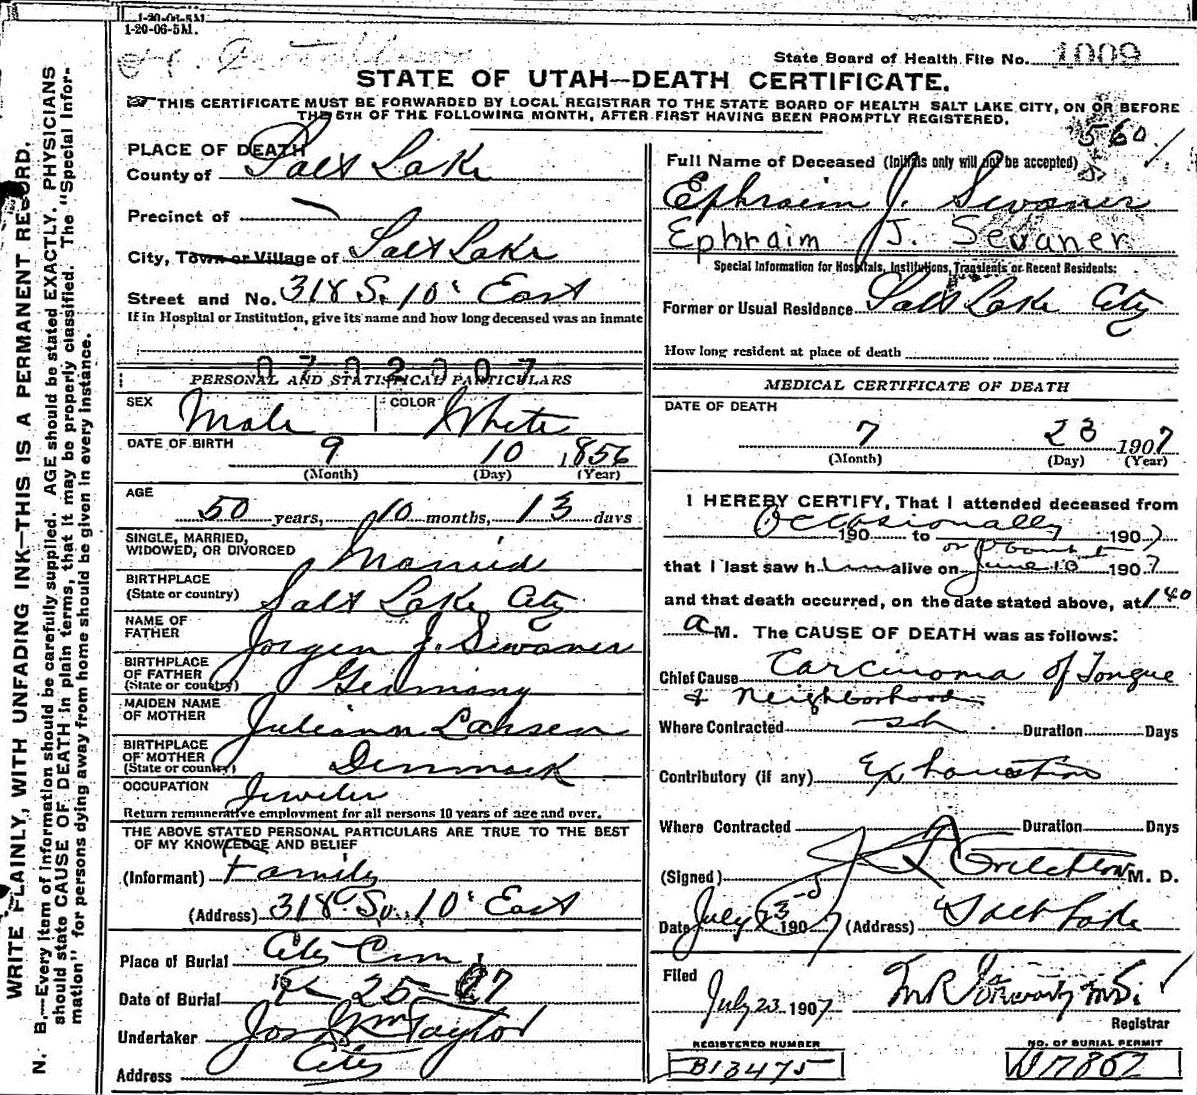 1-20-06-5M.
1-20-06-5M.
State Board of Health File No. 1009
STATE OF UTAH—DEATH CERTIFICATE.
THIS CERTIFICATE MUST BE FORWARDED BY LOCAL REGISTRAR TO THE STATE BOARD OF HEALTH SALT LAKE CITY, ON OR BEFORE
THE 5TH OF THE FOLLOWING MONTH, AFTER FIRST HAVING BEEN PROMPTLY REGISTERED.
560
PLACE OF DEATH
County of Salt Lake
Precinct of
City, Town or Village of Salt Lake
Street and No. 318 S. 10' East
If in Hospital or Institution, give its name and how long deceased was an inmate
0702007
PERSONAL AND STATISTICAL PARTICULARS
SEX Male COLOR White
DATE OF BIRTH 9 10 1856
(Month) (Day) (Year)
AGE
50 years, 10 months, 13 days
SINGLE, MARRIED,
WIDOWED, OR DIVORCED Married
BIRTHPLACE
(State or country) Salt Lake City
NAME OF
FATHER Jorgen J. Sewaner
BIRTHPLACE
OF FATHER
(State or country) Germany
MAIDEN NAME
OF MOTHER Juliann
BIRTHPLACE
OF MOTHER
(State or country) Denmark
OCCUPATION Jeweler
Return remunerative employment for all persons 10 years of age and over.
THE ABOVE STATED PERSONAL PARTICULARS ARE TRUE TO THE BEST
OF MY KNOWLEDGE AND BELIEF
(Informant) Family
(Address) 318 So. 10' East
Place of Burial City Cem
Date of Burial 25 07
Undertaker Jos Wm Taylor
Address City
Full Name of Deceased (Initials only will not be accepted)
Ephraim J. Sewaner
Ephraim J. Sevaner
Special Information for Hospitals, Institutions, Transients or Recent Residents:
Former or Usual Residence Salt Lake City
How long resident at place of death
MEDICAL CERTIFICATE OF DEATH
DATE OF DEATH
7 23 1907
(Month) (Day) (Year)
I HEREBY CERTIFY, That I attended deceased from
Occasionally 190 to 1907
or about
that I last saw him alive on June 10 1907
and that death occurred, on the date stated above, at 1 40
a M. The CAUSE OF DEATH was as follows:
Chief Cause Carcinoma of Tongue
& Neighborhood
Where Contracted Duration Days
Contributory (if any) Exhaustion
Where Contracted Duration Days
(Signed) M. D.
Date July 23 1907 (Address) Salt Lake
Filed
July 23 1907
Registrar
REGISTERED NUMBER
B13475
NO. OF BURIAL PERMIT
D17862
WRITE PLAINLY, WITH UNFADING INK—THIS IS A PERMANENT RECORD.
N. B.—Every item of information should be carefully supplied. AGE should be stated EXACTLY. PHYSICIANS
should state CAUSE OF DEATH in plain terms, that it may be properly classified. The "Special Infor-
mation" for persons dying away from home should be given in every instance.